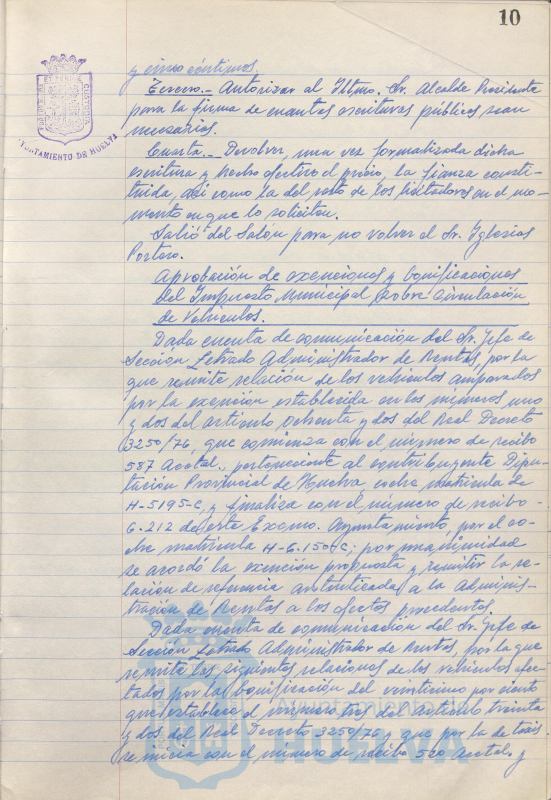 10
AYUNTAMIENTO DE HUELVA
y cinco céntimos.
Tercero.- Autorizar al Iltmo. Sr. Alcalde Presidente
para la firma de cuantas escrituras públicas sean
necesarias.
Cuarto.- Devolver, una vez formalizada dicha
escritura y hecho efectivo el precio, la fianza consti-
tuida, así como la del resto de los licitadores en el mo-
mento en que lo soliciten.
Salió del Salón para no volver el Sr. Iglesias
Portero.
Aprobación de exenciones y bonificaciones
del Impuesto Municipal sobre Circulación
de Vehículos.
Dada cuenta de comunicación del Sr. Jefe de
Sección Letrado Administrador de Rentas, por la
que remite relación de los vehículos amparados
por la exención establecida en los números uno
y dos del artículo ochenta y dos del Real Decreto
3250/76, que comienza con el número de recibo
587 Acctal. perteneciente al contribuyente Dipu-
tación Provincial de Huelva coche matrícula de
H-5195-C, y finaliza con el número de recibo
6.212 de este Excmo. Ayuntamiento, por el co-
che matrícula H-6.150-C; por unanimidad
se acordó la exención propuesta y remitir la re-
lación de referencia autenticada a la Adminis-
tración de Rentas a los efectos procedentes.
Dada cuenta de comunicación del Sr. Jefe de
Sección Letrado Administrador de Rentas, por la que
remite las siguientes relaciones de los vehículos afec-
tados por la bonificación del veinticinco por ciento
que establece el número tres del artículo treinta
y dos del Real Decreto 3250/76 y que por la de taxis
se inicia con el número de recibo 520 Acctal. y
Ayuntamiento de
HUELVA